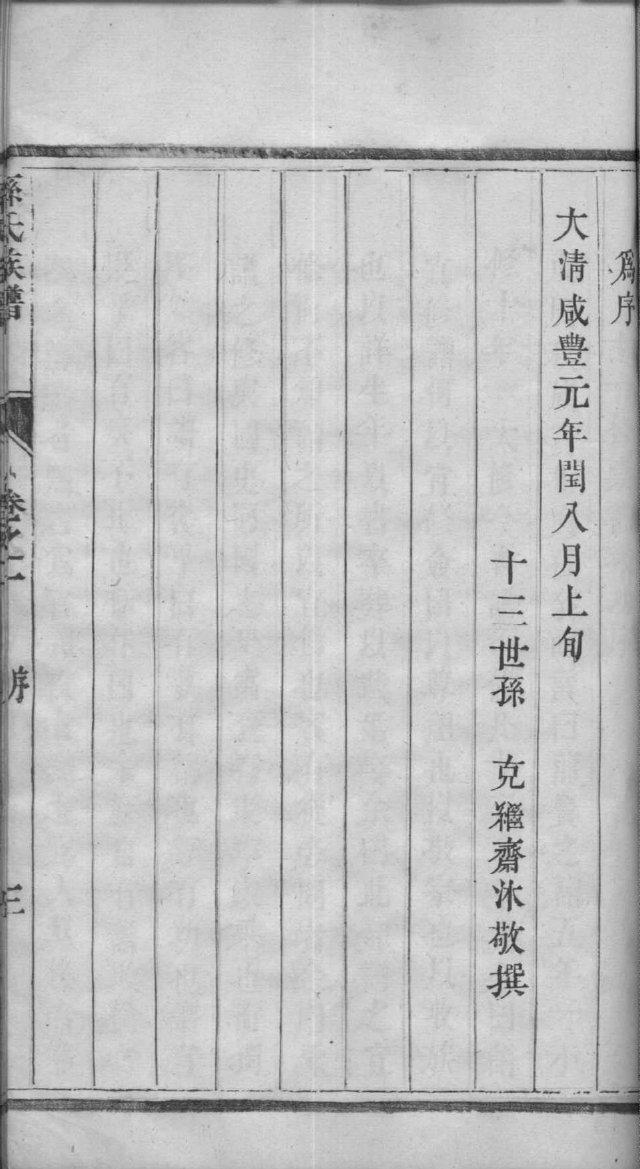 爲序
大清咸豊元年閏八月上旬
十三世孫 克繼齋沐敬撰
孫氏族譜
卷之一
序
三